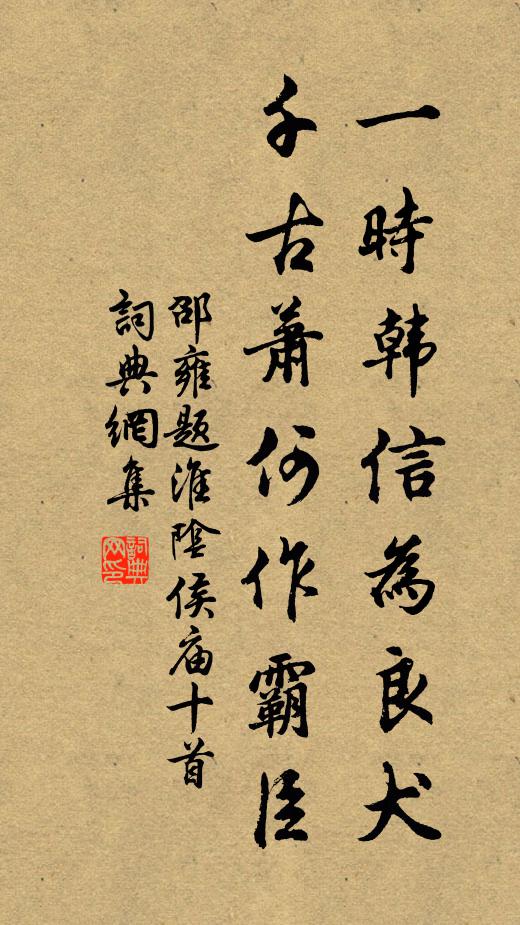 一時韩信為良犬
千古蕭何作霸臣
邵雍题淮陰侯庙十首
詞典網集
詞典
网印